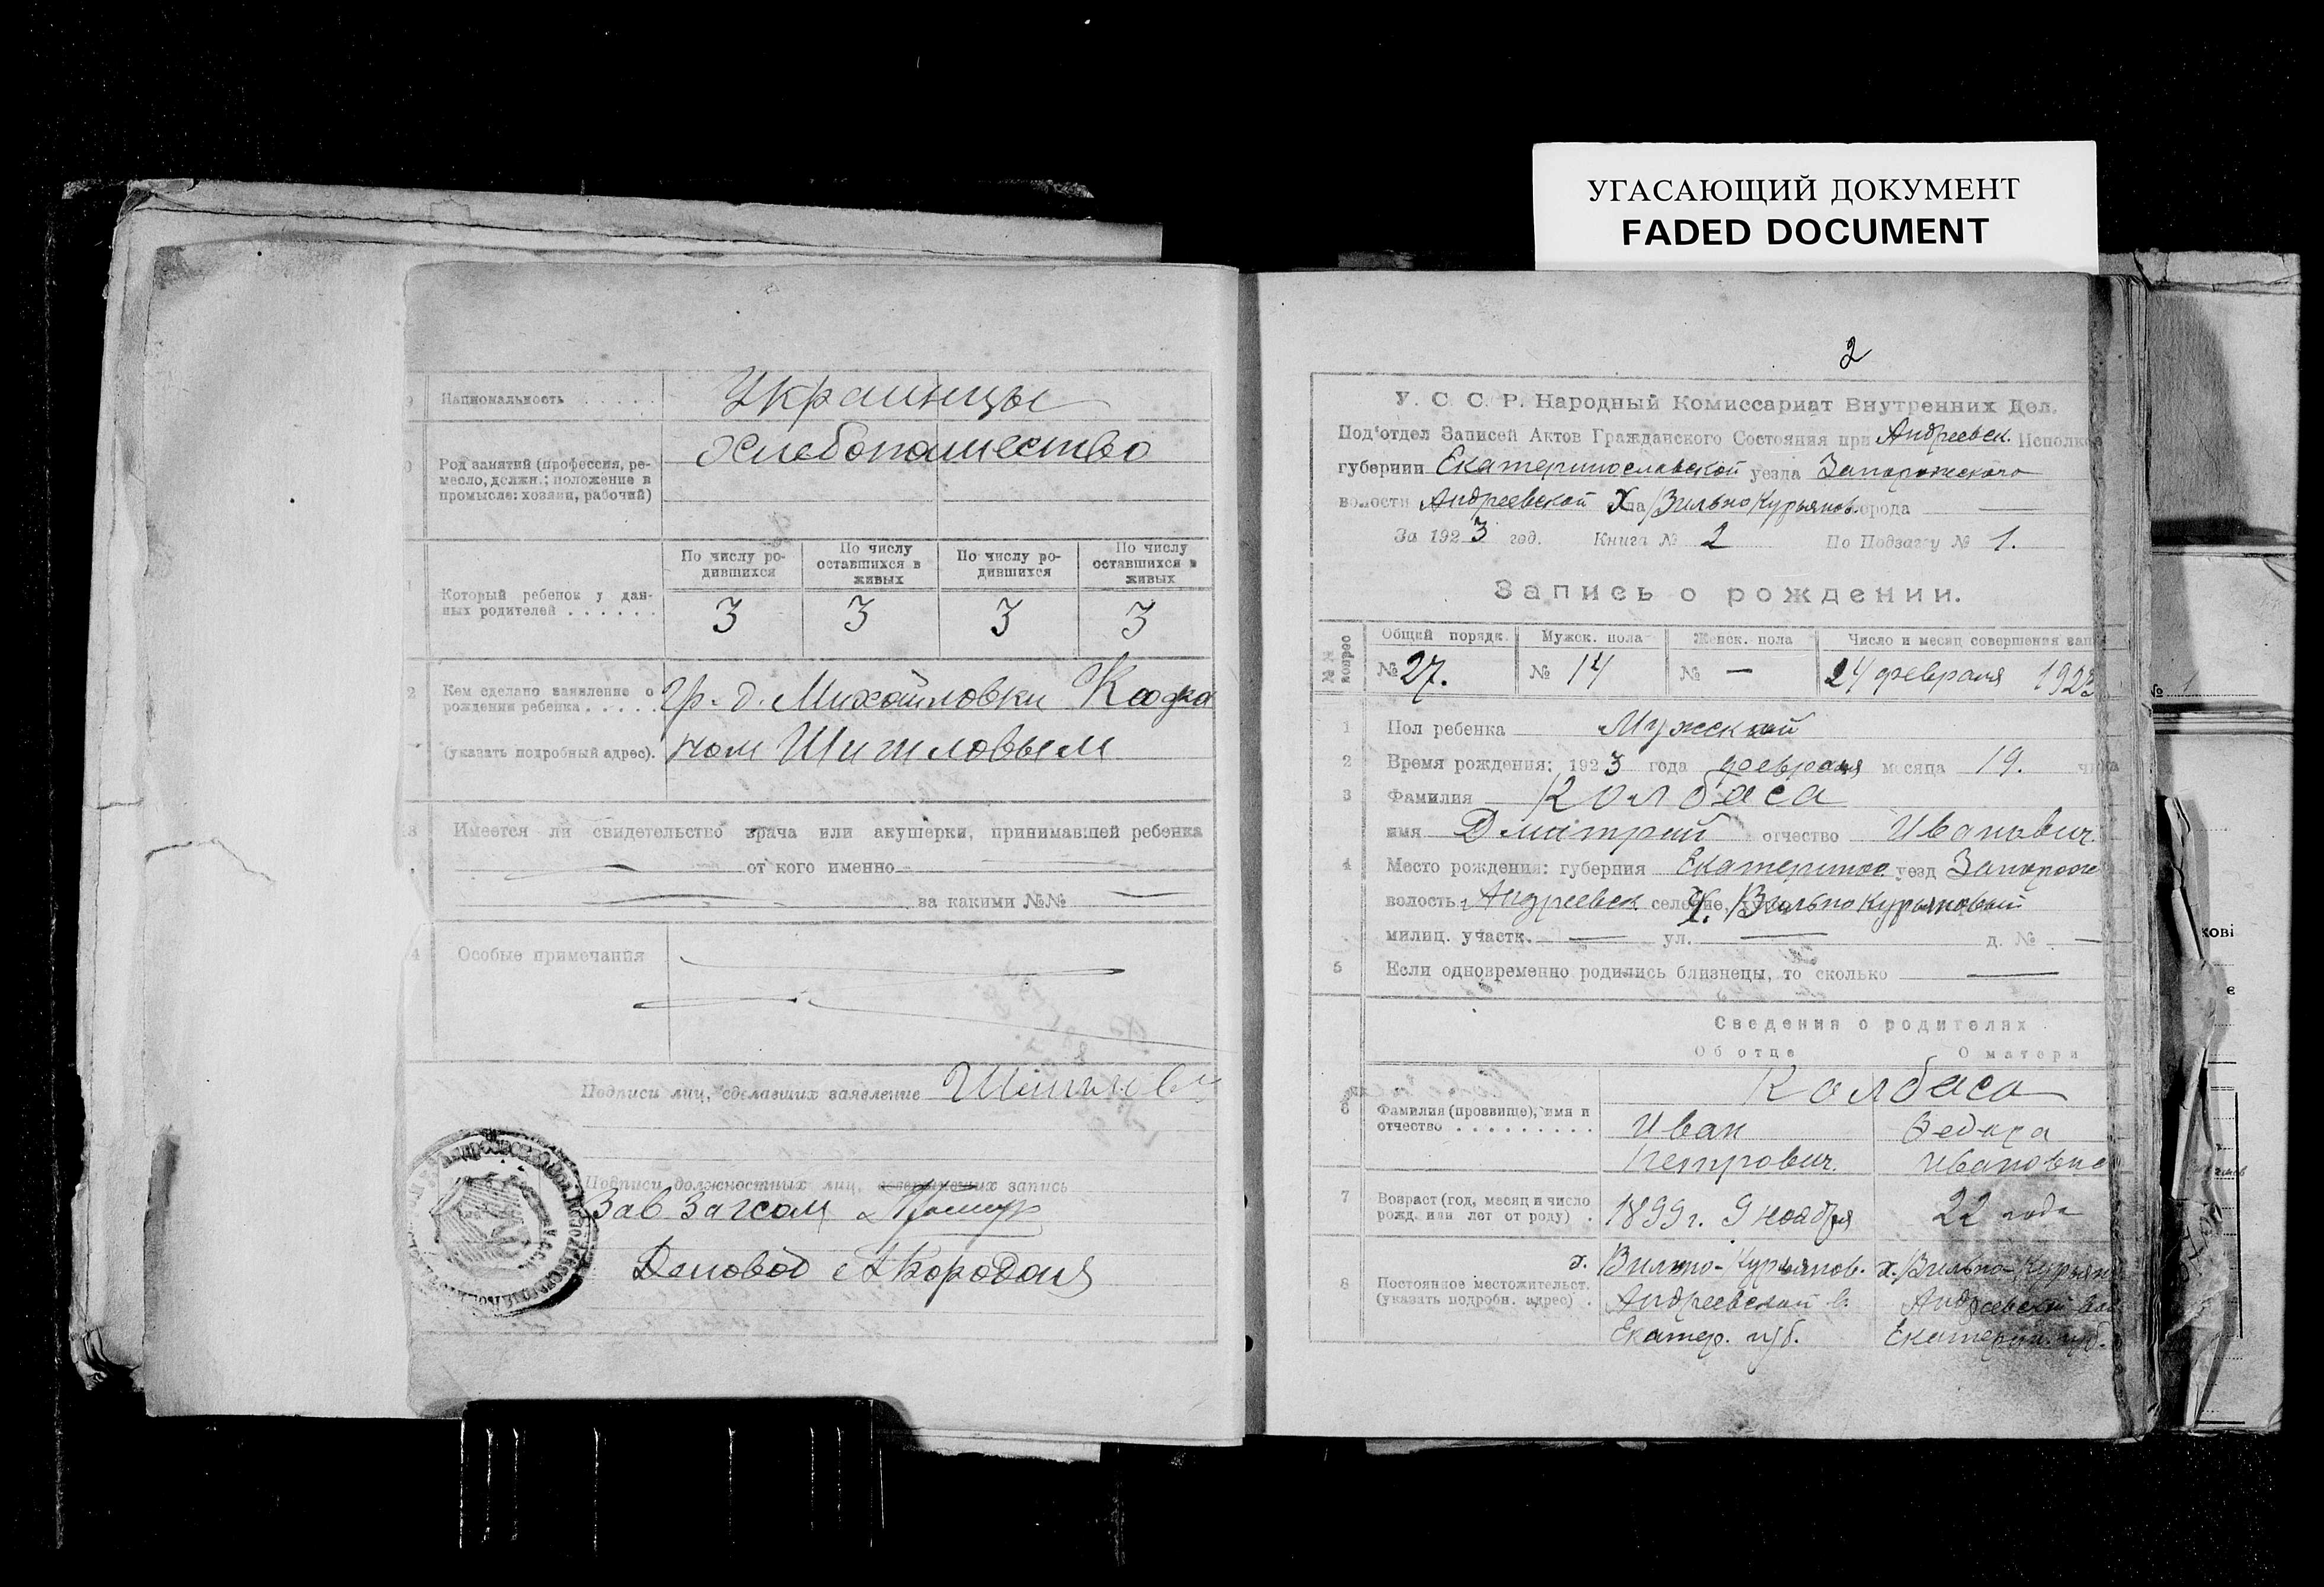 УГАСАЮЩИЙ ДОКУМЕНТ
FADED DOCUMENT
Национальность . . . . . Украинцы
Род занятий (профессия, ре-
месло, должн.; положение в
промысле: хозяин, рабочий)
Хлебопашество
По числу ро-
дившихся
По числу
оставшихся в
живых
По числу ро-
дившихся
По числу
оставшихся в
живых
Который ребенок у дан-
ных родителей . . . . . .
3 3 3 3
2 Кем сделано заявление о
рождении ребенка . . . . .
(указать подробный адрес).
гр. д. Михайловки
Шишловым
Имеется ли свидетельство врача или акушерки, принимавшей ребенка
от кого именно
за какими №№
4 Особые примечания
Подписи лиц, сделавших заявление
Подписи должностных лиц, совершивших запись
Зав Загсом
Деловод
2
У. С. С. Р. Народный Комиссариат Внутренних Дел.
Под'отдел Записей Актов Гражданского Состояния при Андреевск. Исполко
губернии Екатеринославской уезда Запорожского
волости Андреевской Х Вильно Курьянов. города —
За 1923 год. Книга № 2 По Подзагсу № 1.
Запись о рождении.
№№ вопрос
Общий порядк. Мужск. пола Женск. пола Число и месяц совершения зап
№ 27. № 14 № — 24 февраля 1923
1 Пол ребенка Мужской
2 Время рождения: 1923 года февраля месяца 19. числа
3 Фамилия Колбаса
имя Дмитрий отчество Иванович.
4 Место рождения: губерния Екатеринос уезд Запорож
волость Андреевск селение, х. Вильно Курьяновый
милиц. участк. — ул. — д. № —
5 Если одновременно родились близнецы, то сколько —
Сведения о родителях
Об отце О матери
Колбаса
6 Фамилия (прозвище), имя и
отчество . . . . . . . . .
Иван
Петрович.
Федора
Ивановна
7 Возраст (год, месяц и число
рожд. или лет от роду) .
1899 г. 9 ноября 22 года
8 Постоянное местожительст.
(указать подробн. адрес) .
х. Вильно-Курьянов. х. Вильно-Курьян
Андреевской в. Андреевской вол
Екатер. губ. Екатерин. губ.
№ 1
кові